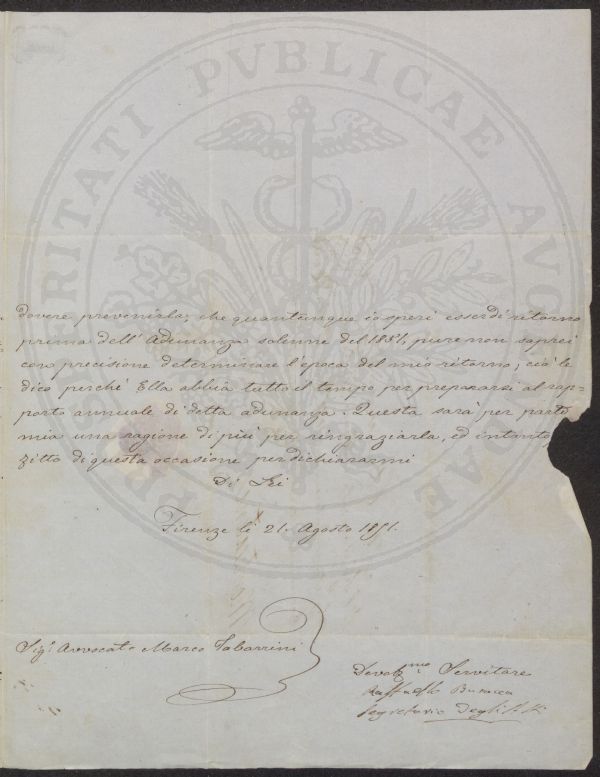 PROSPERITATI PVBLICAE AVGENDAE
dovere prevenirla; che quantunque io speri esser di ritorno
prima dell' Adunanza solenne del 1851, pure non saprei
con precisione determinare l'epoca del mio ritorno; ciò le
dico perchè Ella abbia tutto il tempo per prepararsi al rap=
porto annuale di detta adunanza. Questa sarà per parte
mia una ragione di più per ringraziarla, ed intanto
fitto di questa occasione per dichiararmi
Di Lei
Firenze li 21. Agosto 1851.
Sigr. Avvocato Marco Tabarrini
Devotmo Servitore
Raffaello
Segretario degli